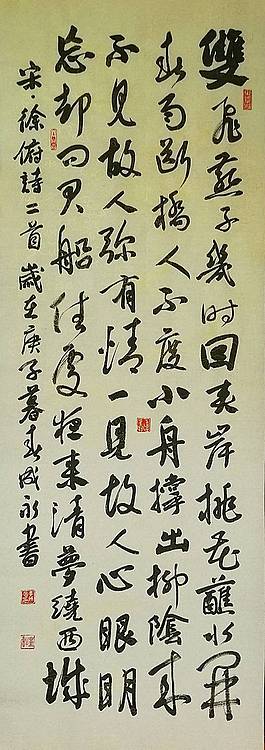 雙飛燕子幾时回夾岸桃花蘸水開
春雨斷橋人不度小舟撐出柳陰来
不見故人弥有情一見故人心眼明
忘却問君船住處夜来清夢繞西城
宋·徐俯詩二首歲在庚子暮春成永書